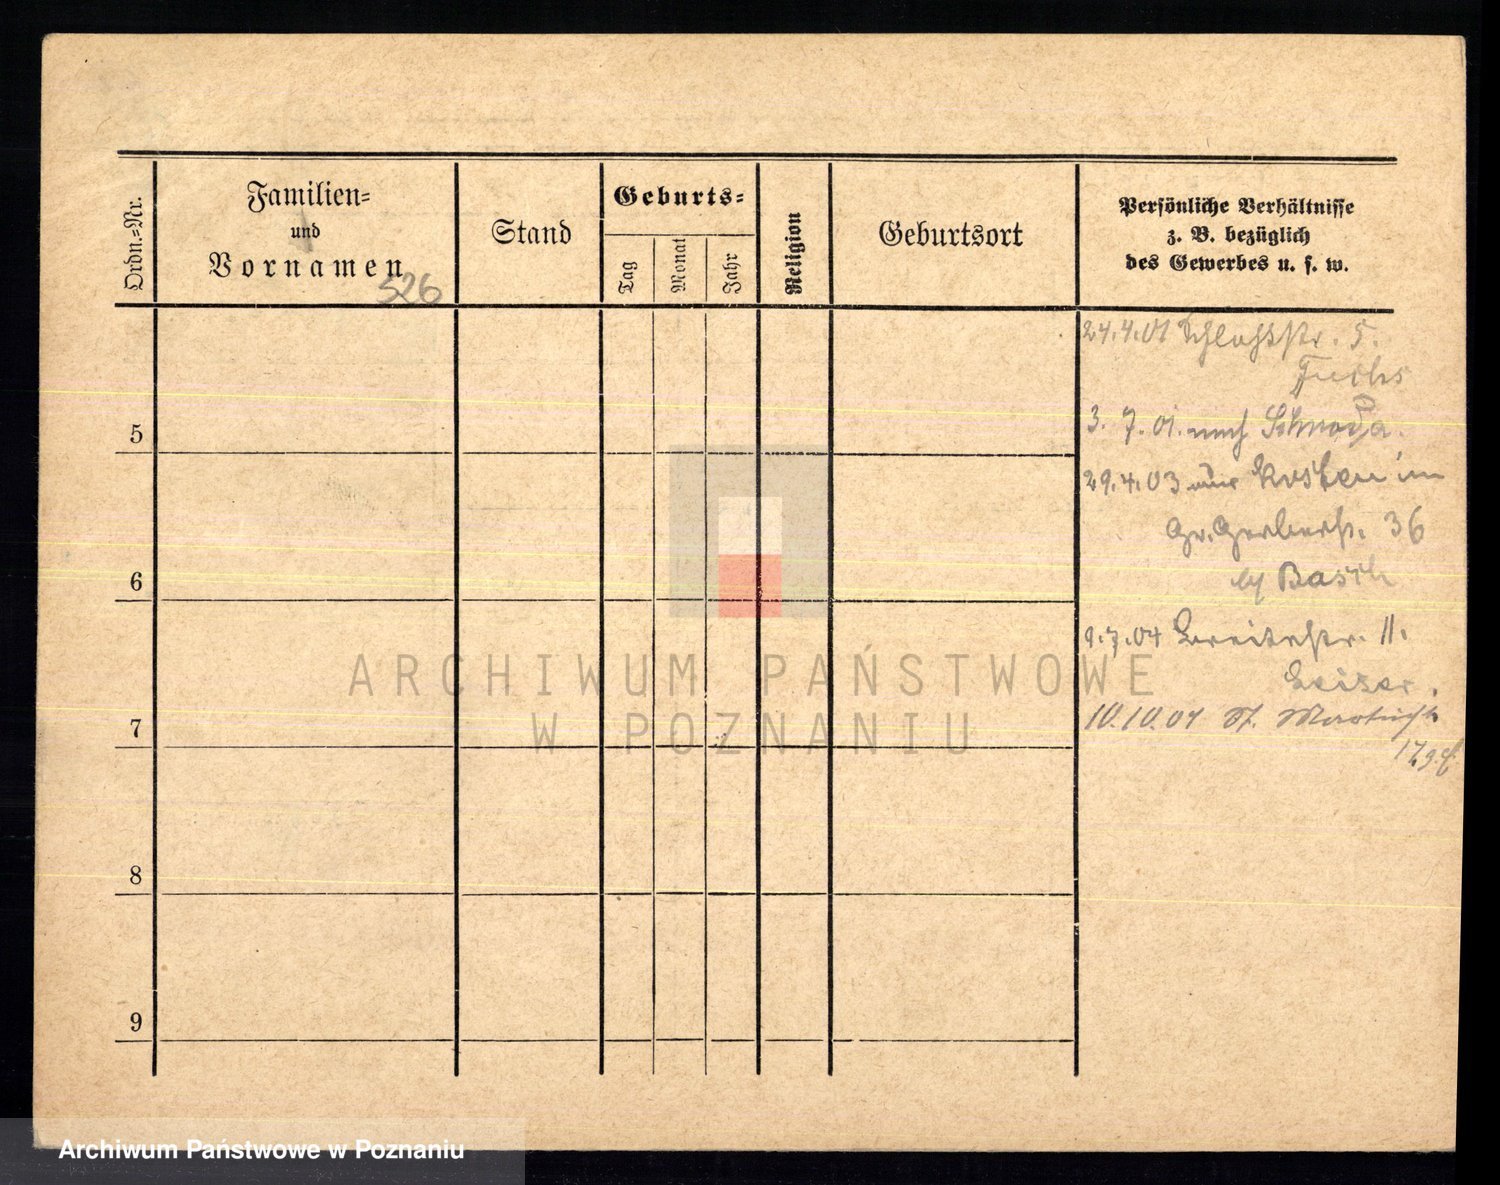 Ordn.-Nr.
Familien-
und
Vornamen
526
Stand
Geburts-
Tag
Monat
Jahr
Religion
Geburtsort
Persönliche Verhältnisse
z. B. bezüglich
des Gewerbes u. s. w.
24.4.01 Schloßstr. 5.
Fuchs
3. 7. 01. nach Schroda.
29.4.03 aus Kosten im
Gr. Gerberstr. 36
by Basch
9.7.04 Breitestr. 11.
10.10.04 St. Martinstr.
5
6
7
8
9
ARCHIWUM PAŃSTWOWE
W POZNANIU
Archiwum Państwowe w Poznaniu